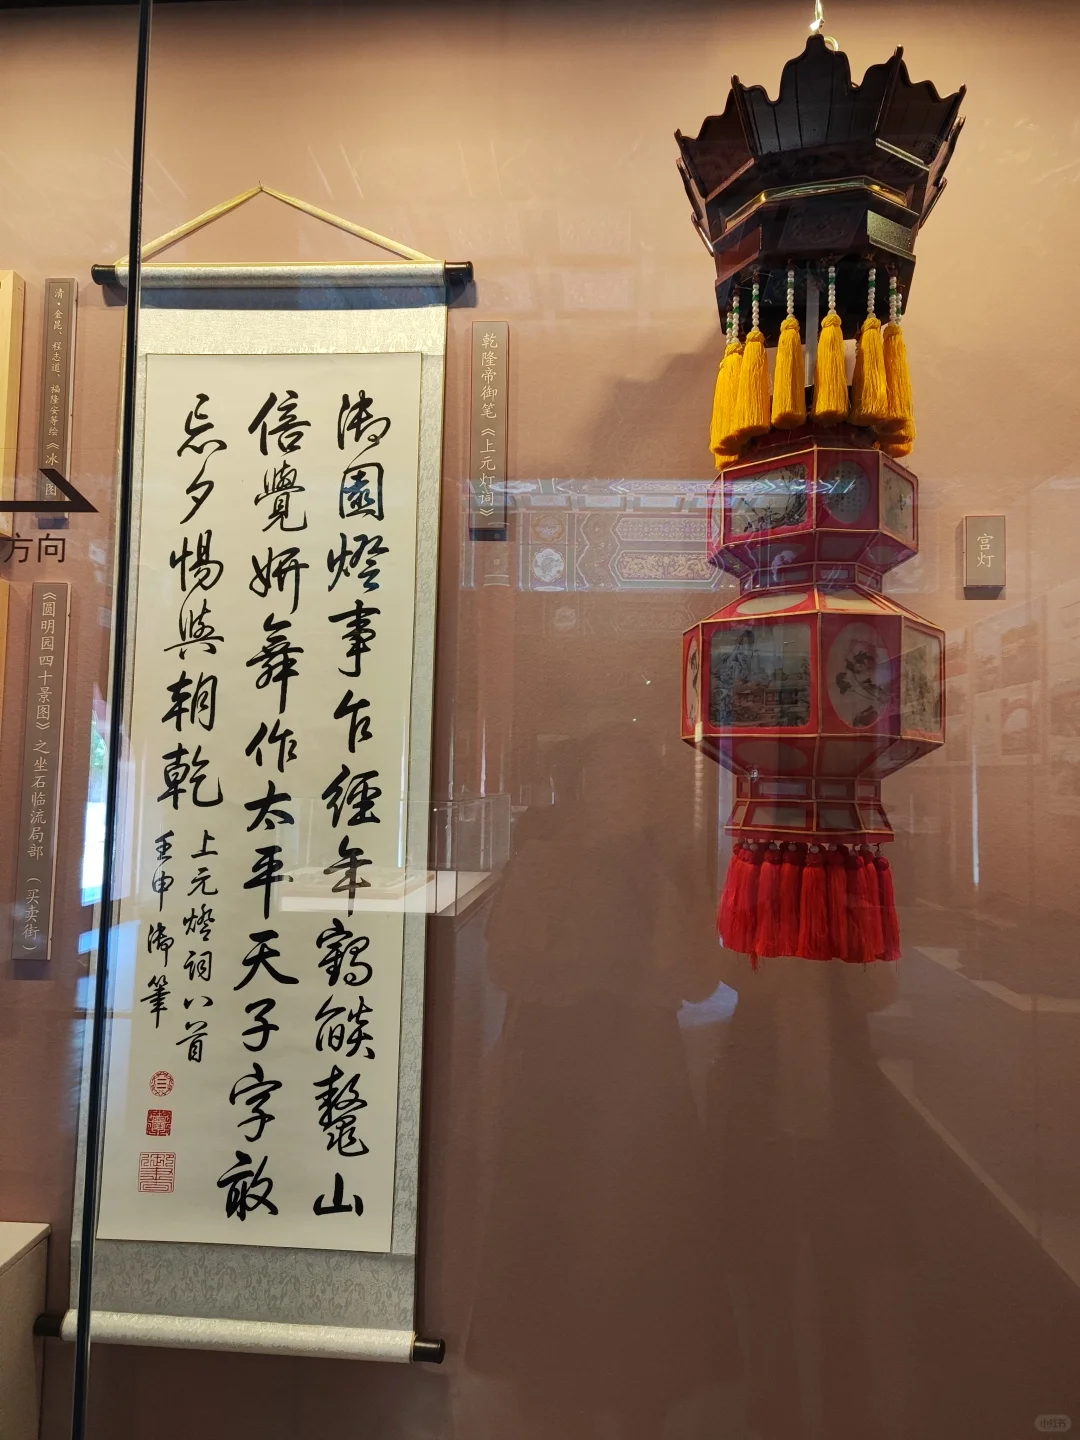 御園燈事乍經年鶴燄鼇山
倍覺妍舞作太平天子字敢
忘夕惕與朝乾
上元燈詞八首
壬申御筆
乾隆帝御笔《上元灯词》
宫灯
清·金昆、程志道、福隆安等绘《冰 图
方向
《圆明园四十景图》之坐石临流局部（买卖街）
小红书